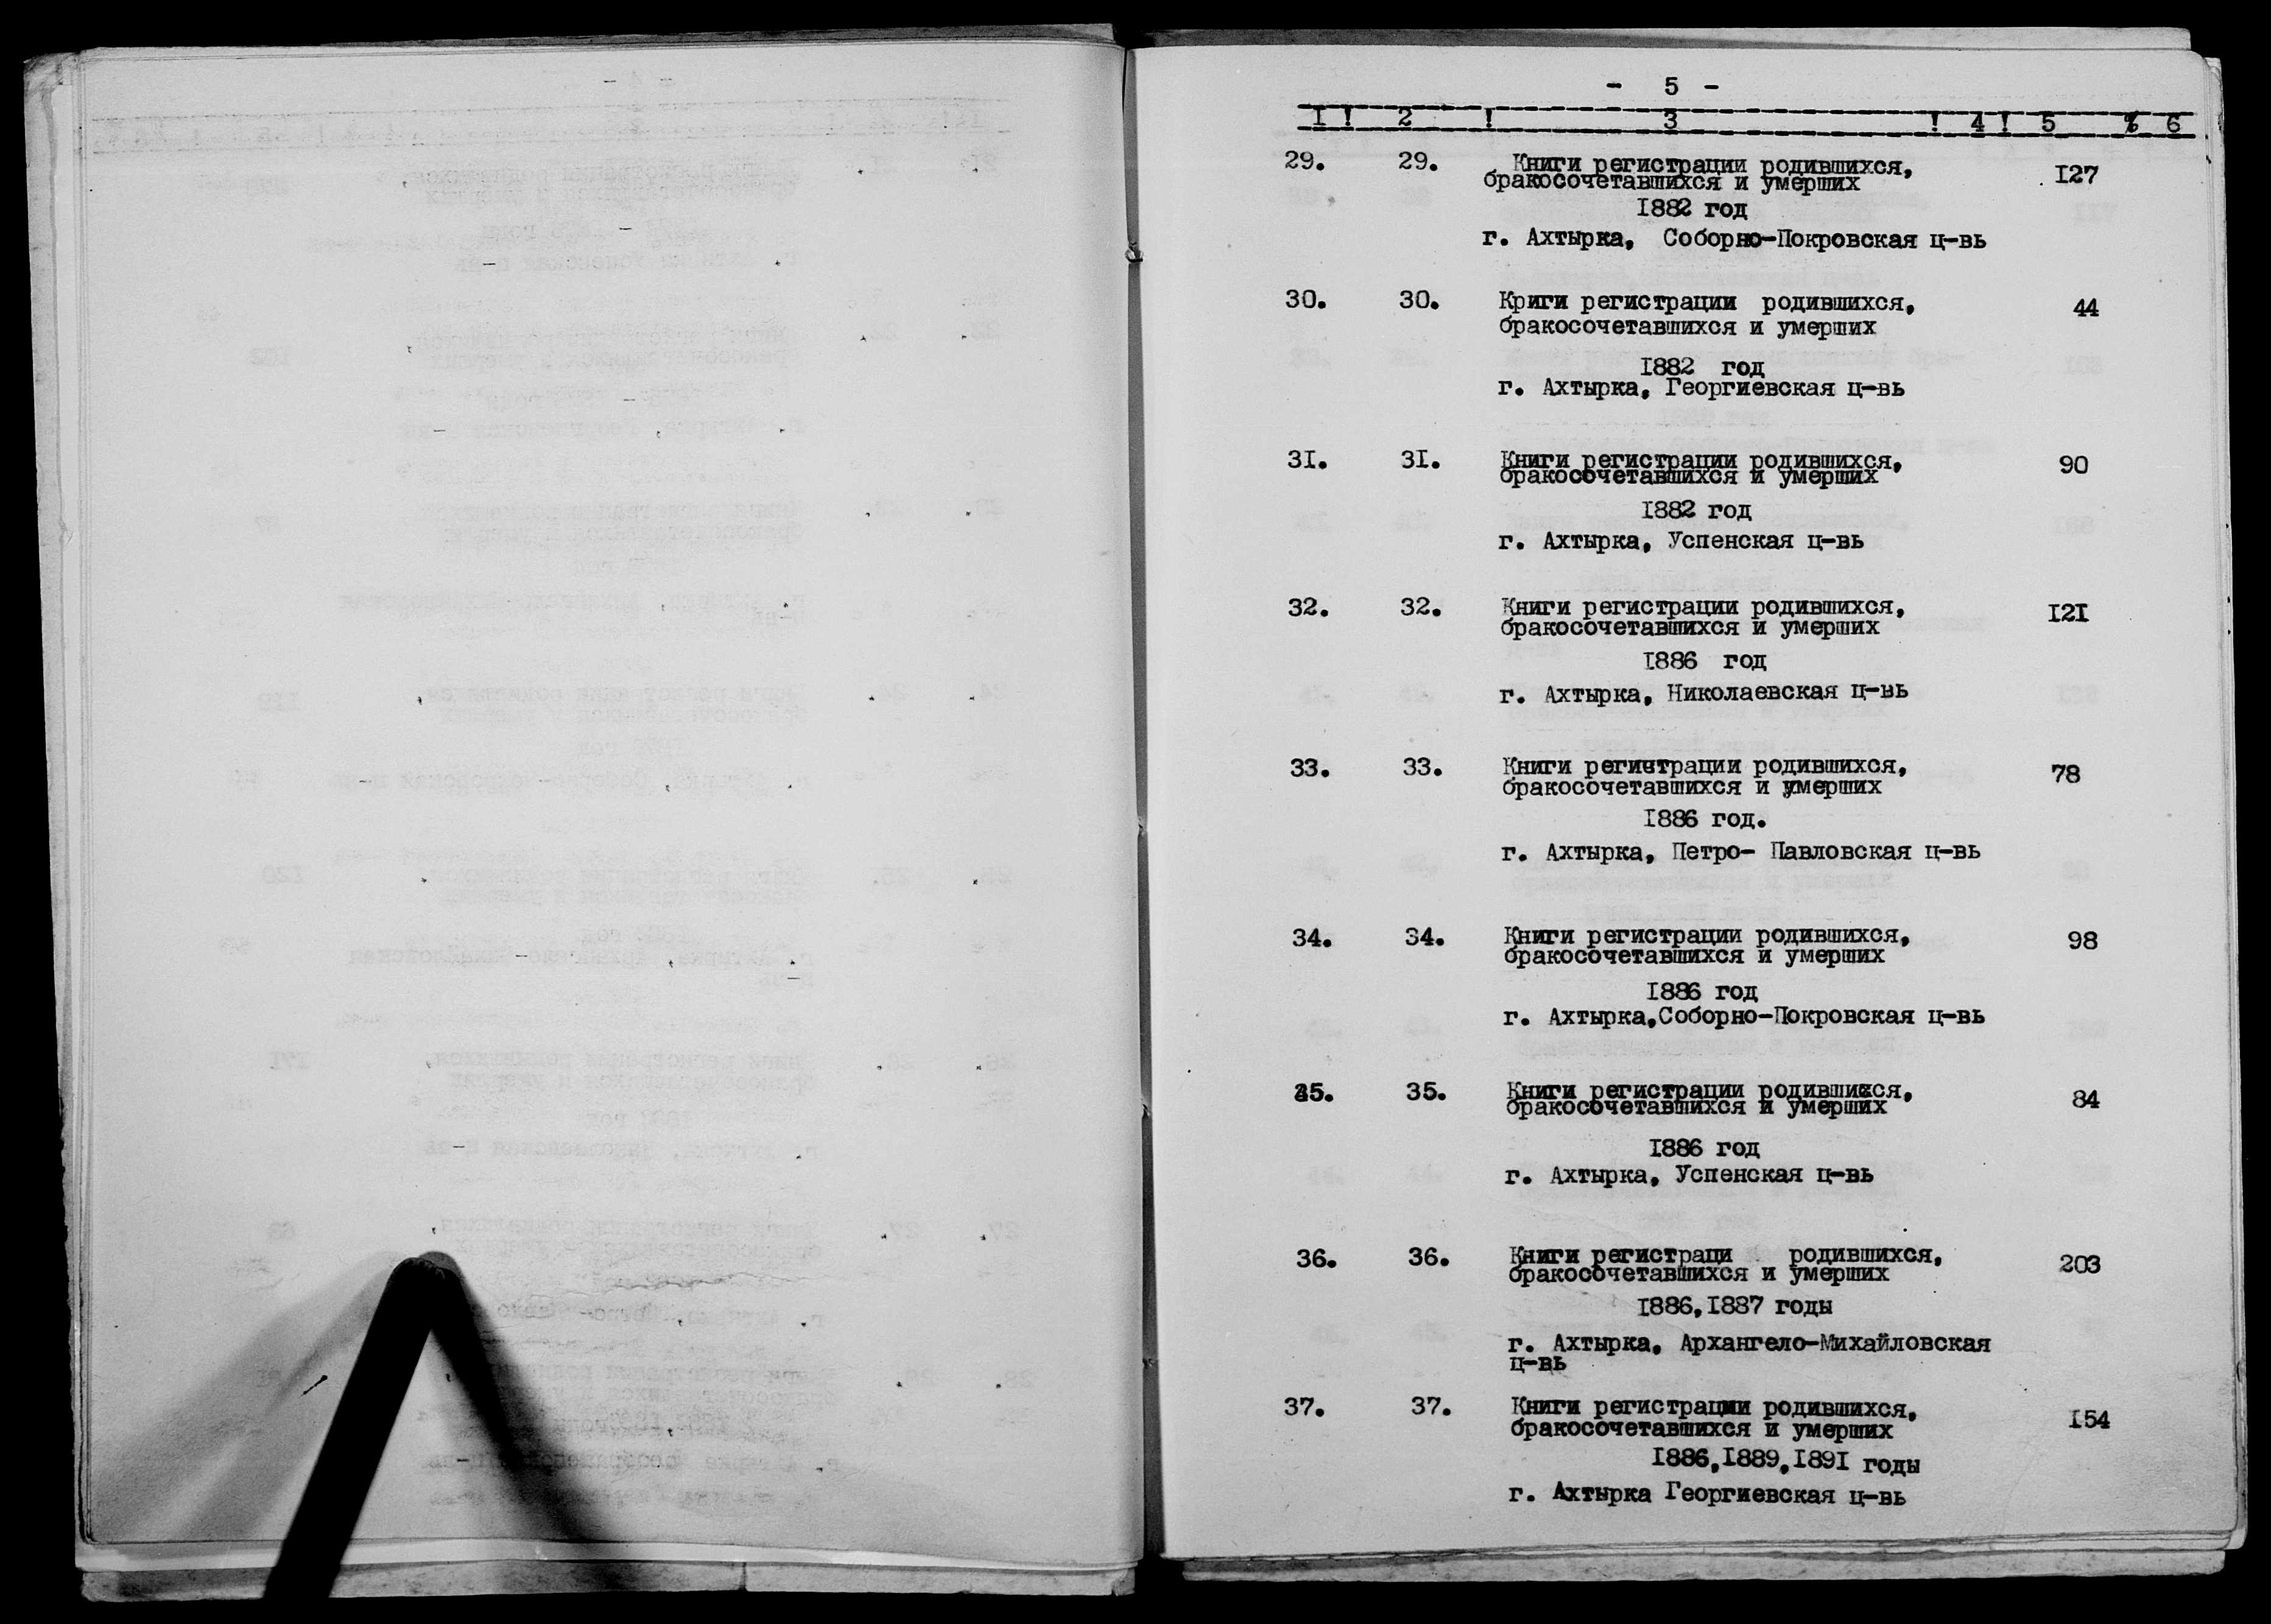 - 5 -
I ! 2 ! 3 ! 4 ! 5 % 6
29. 29. Книги регистрации родившихся, 127
бракосочетавшихся и умерших
1882 год
г. Ахтырка, Соборно-Покровская ц-вь
30. 30. Криги регистрации родившихся, 44
бракосочетавшихся и умерших
1882 год
г. Ахтырка, Георгиевская ц-вь
3I. 3I. Книги регистрации родившихся, 90
бракосочетавшихся и умерших
I882 год
г. Ахтырка, Успенская ц-вь
32. 32. Книги регистрации родившихся, I2I
бракосочетавшихся и умерших
I886 год
г. Ахтырка, Николаевская ц-вь
33. 33. Книги региетрации родившихся, 78
бракосочетавшихся и умерших
I886 год.
г. Ахтырка, Петро- Павловская ц-вь
34. 34. Книги регистрации родившихся, 98
бракосочетавшихся и умерших
I886 год
г. Ахтырка,Соборно-Покровская ц-вь
35. 35. Книги регистрации родившихся, 84
бракосочетавшихся и умерших
I886 год
г. Ахтырка, Успенская ц-вь
36. 36. Книги регистраци родившихся, 203
бракосочетавшихся и умерших
I886,I887 годы
г. Ахтырка, Архангело-Михайловская
ц-вь
37. 37. Книги регистрации родившихся, I54
бракосочетавшихся и умерших
I886,I889,I89I годы
г. Ахтырка Георгиевская ц-вь